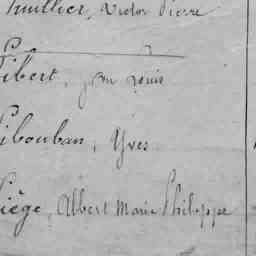 huillier, Victor Pierre
L
Libert, Jean Louis
Libouban, Yves
Liège, Albert Marie Philippe